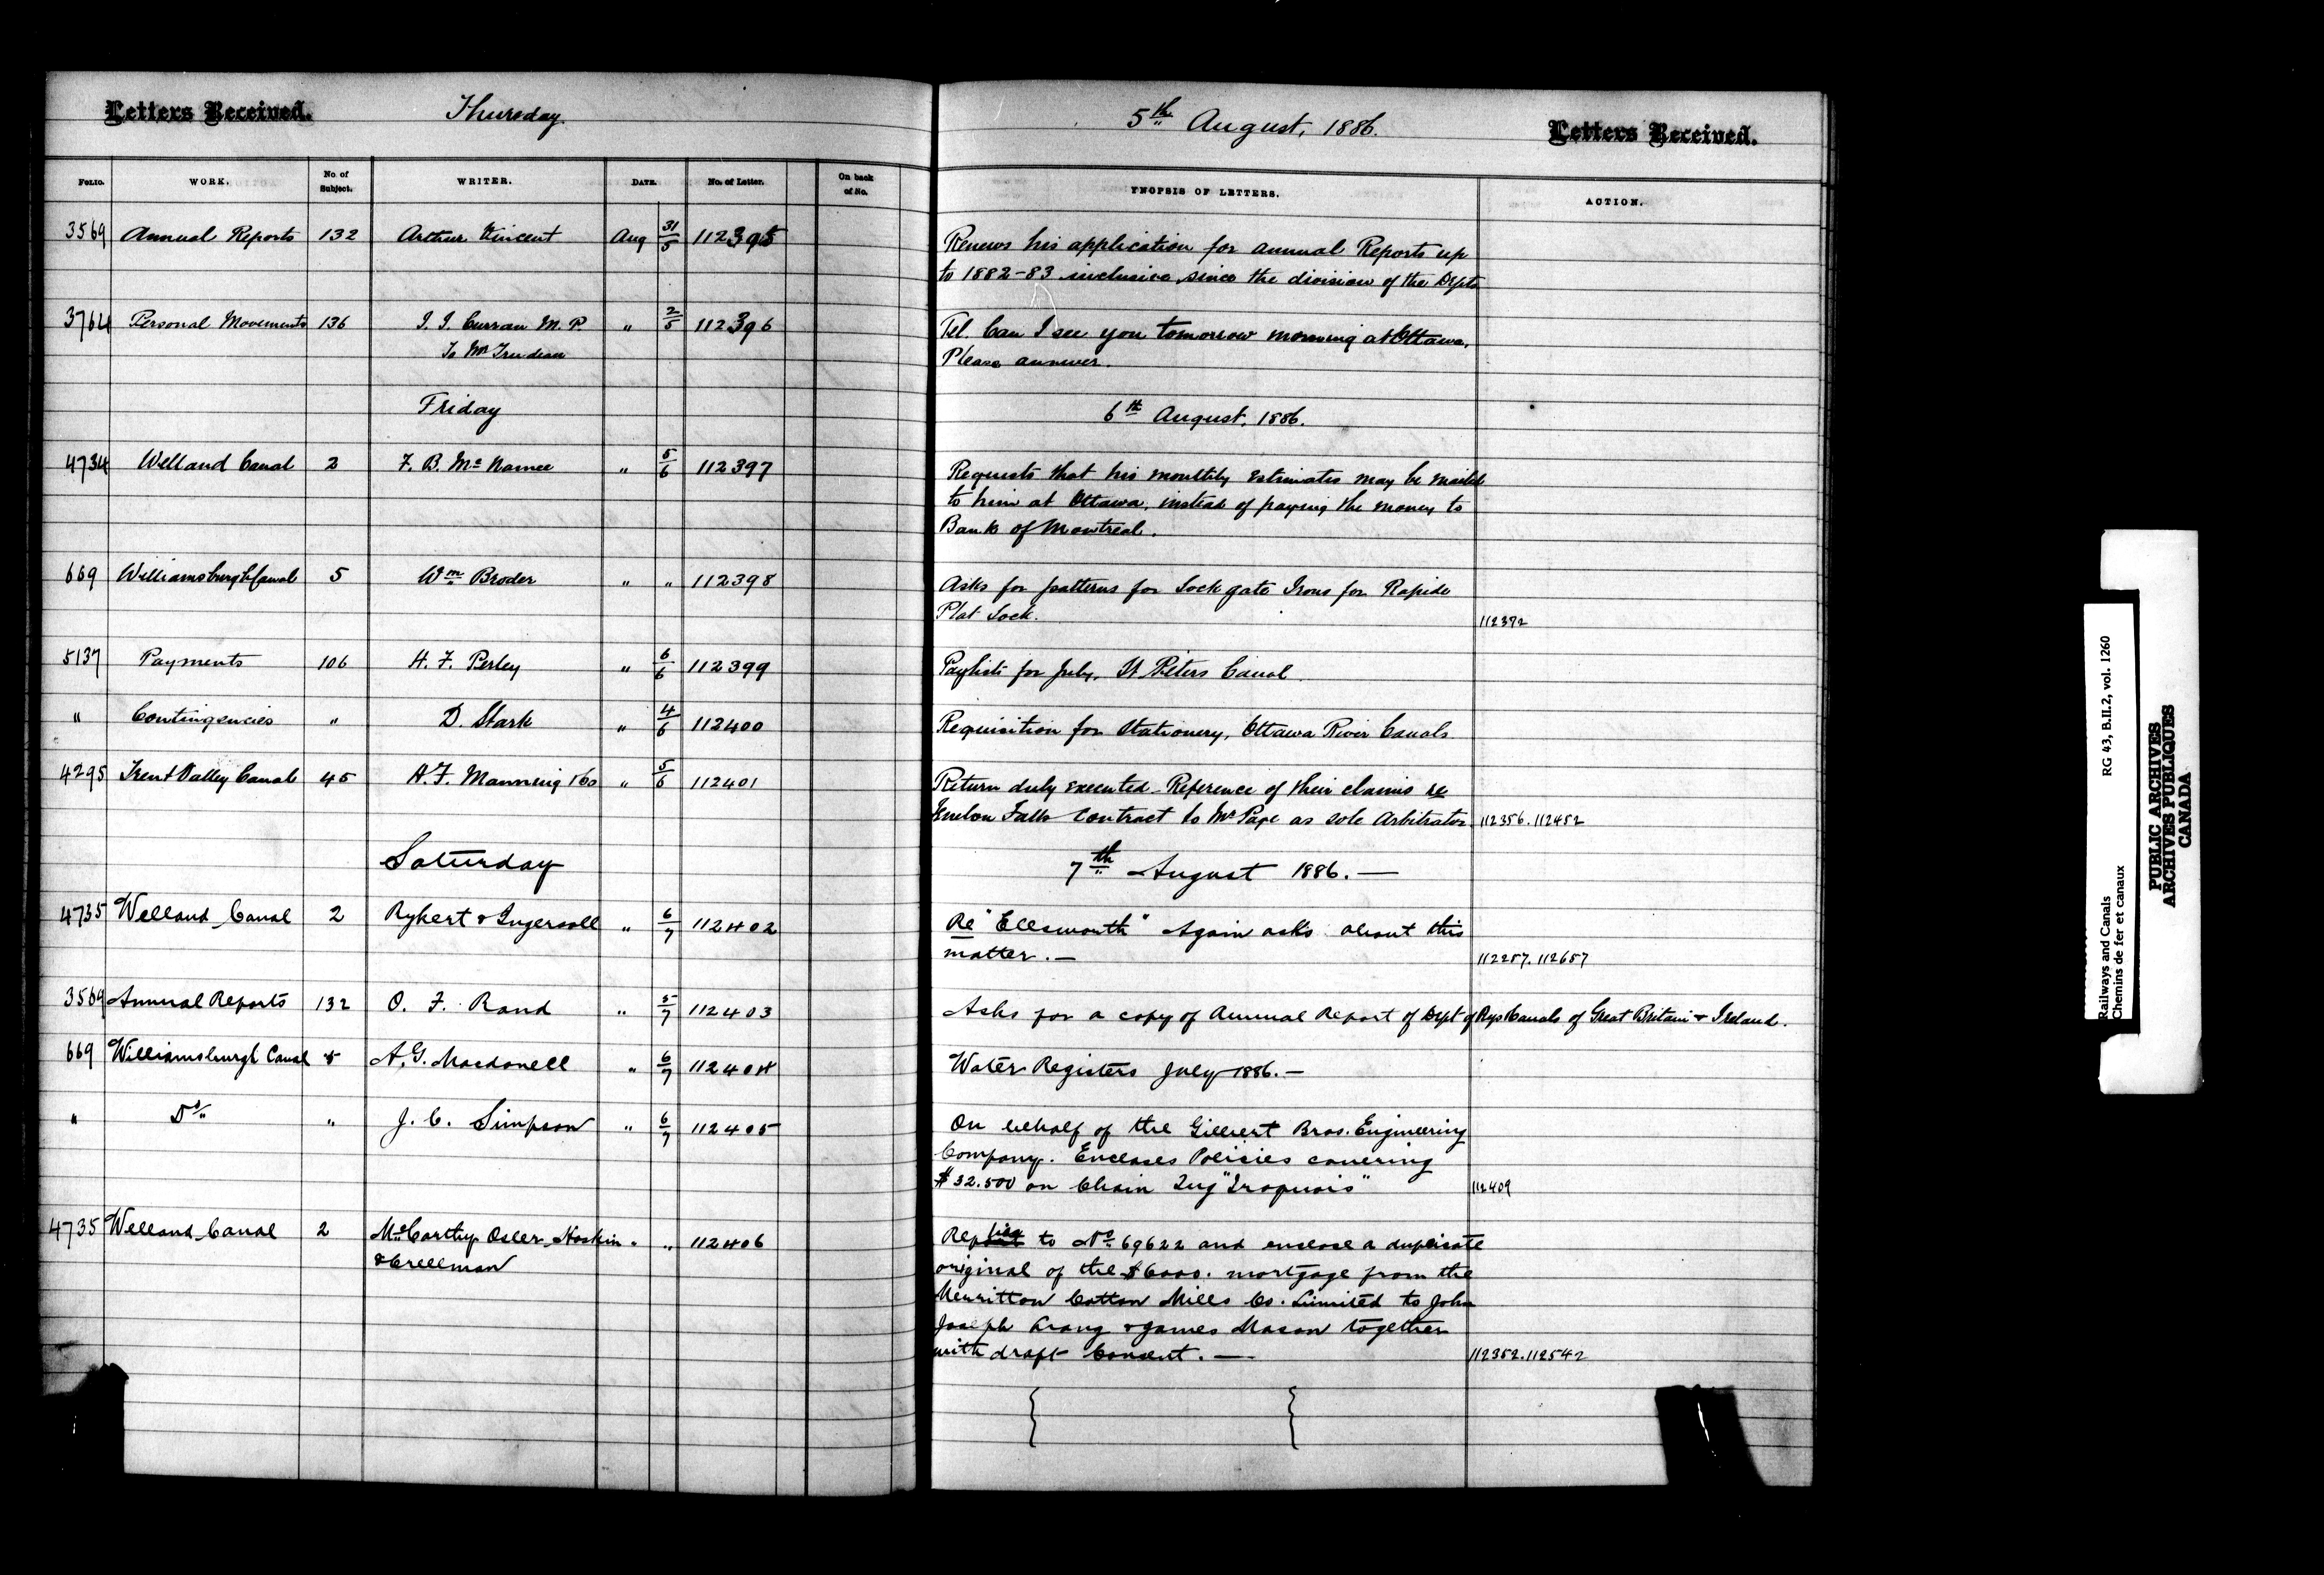 Letters Received. Thursday 5th August, 1886. Letters Received.
FOLIO. WORK. No. of Subject. WRITER. DATE. No. of Letter. On back of No. SYNOPSIS OF LETTERS. ACTION.
3569 Annual Reports 132 Arthur Vincent Aug 31/5 112395 Renews his application for annual Reports up
to 1882-83 inclusive since the division of the Depts
3764 Personal Movements 136 J. J. Curran M.P " 2/5 112396 Tel. Can I see you tomorrow morning at Ottawa.
To Mr Trudeau Please answer.
Friday 6th August, 1886.
4734 Welland Canal 2 F. B. Mc Namee " 5/6 112397 Requests that his monthly estimates may be mailed
to him at Ottawa, instead of paying the money to
Bank of Montreal.
669 Williamsburgh Canal 5 Wm Broder " " 112398 Asks for patterns for Lock gate Irons for Rapide
Plat Lock. 112392
5137 Payments 106 H. F. Perley " 6/6 112399 Paylists for July, St Peters Canal
" Contingencies " D. Stark " 4/6 112400 Requisition for Stationery, Ottawa River Canals
4295 Trent Valley Canal 45 A. F. Manning &Co " 5/6 112401 Return duly executed Reference of their claims re
Fenelon Falls contract to Mr Page as sole Arbitrator 112356. 112452
Saturday 7th August 1886. —
4735 Welland Canal 2 Rykert & Ingersoll " 6/7 112402 Re "Ellsworth" Again asks about this
matter. — 112257. 112657
3569 Annual Reports 132 O. F. Rand " 5/7 112403 Asks for a copy of Annual Report of Dept of Rys & Canals of Great Britain & Ireland.
669 Williamsburgh Canal 5 A. G. Macdonell " 6/7 112404 Water Registers July 1886. —
" Do " J. C. Simpson " 6/7 112405 On behalf of the Gilbert Bros. Engineering
Company. Encloses Policies covering
$32.500 on Chain Tug "Iroquois" 112409
4735 Welland Canal 2 McCarthy Osler Hoskin " " 112406 Replies to No 69622 and enclose a duplicate
& Creelman original of the $6000. mortgage from the
Merritton Cotton Mills Co. Limited to John
Joseph & James Mason together
with draft Consent. — 112352. 112542
Railways and Canals RG 43, B.II.2, vol. 1260
Chemins de fer et canaux
PUBLIC ARCHIVES
ARCHIVES PUBLIQUES
CANADA